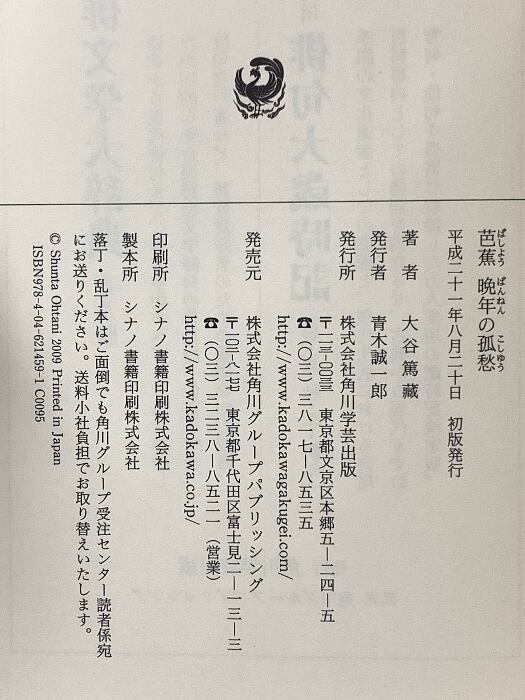 ばしよう ばんねん こしゆう
芭蕉 晩年の孤愁
平成二十一年八月二十日 初版発行
著 者 大谷篤藏
発行者 青木誠一郎
発行所 株式会社角川学芸出版
〒一一三―〇〇三三 東京都文京区本郷五―二四―五
☎(〇三)三八一七―八五三五
http://www.kadokawagakugei.com/
発売元 株式会社角川グループパブリッシング
〒一〇二―八一七七 東京都千代田区富士見二―一三―三
☎(〇三)三二三八―八五二一(営業)
http://www.kadokawa.co.jp/
印刷所 シナノ書籍印刷株式会社
製本所 シナノ書籍印刷株式会社
落丁・乱丁本はご面倒でも角川グループ受注センター読者係宛
にお送りください。送料小社負担でお取り替えいたします。
© Shunta Ohtani 2009 Printed in Japan
ISBN978-4-04-621459-1 C0095